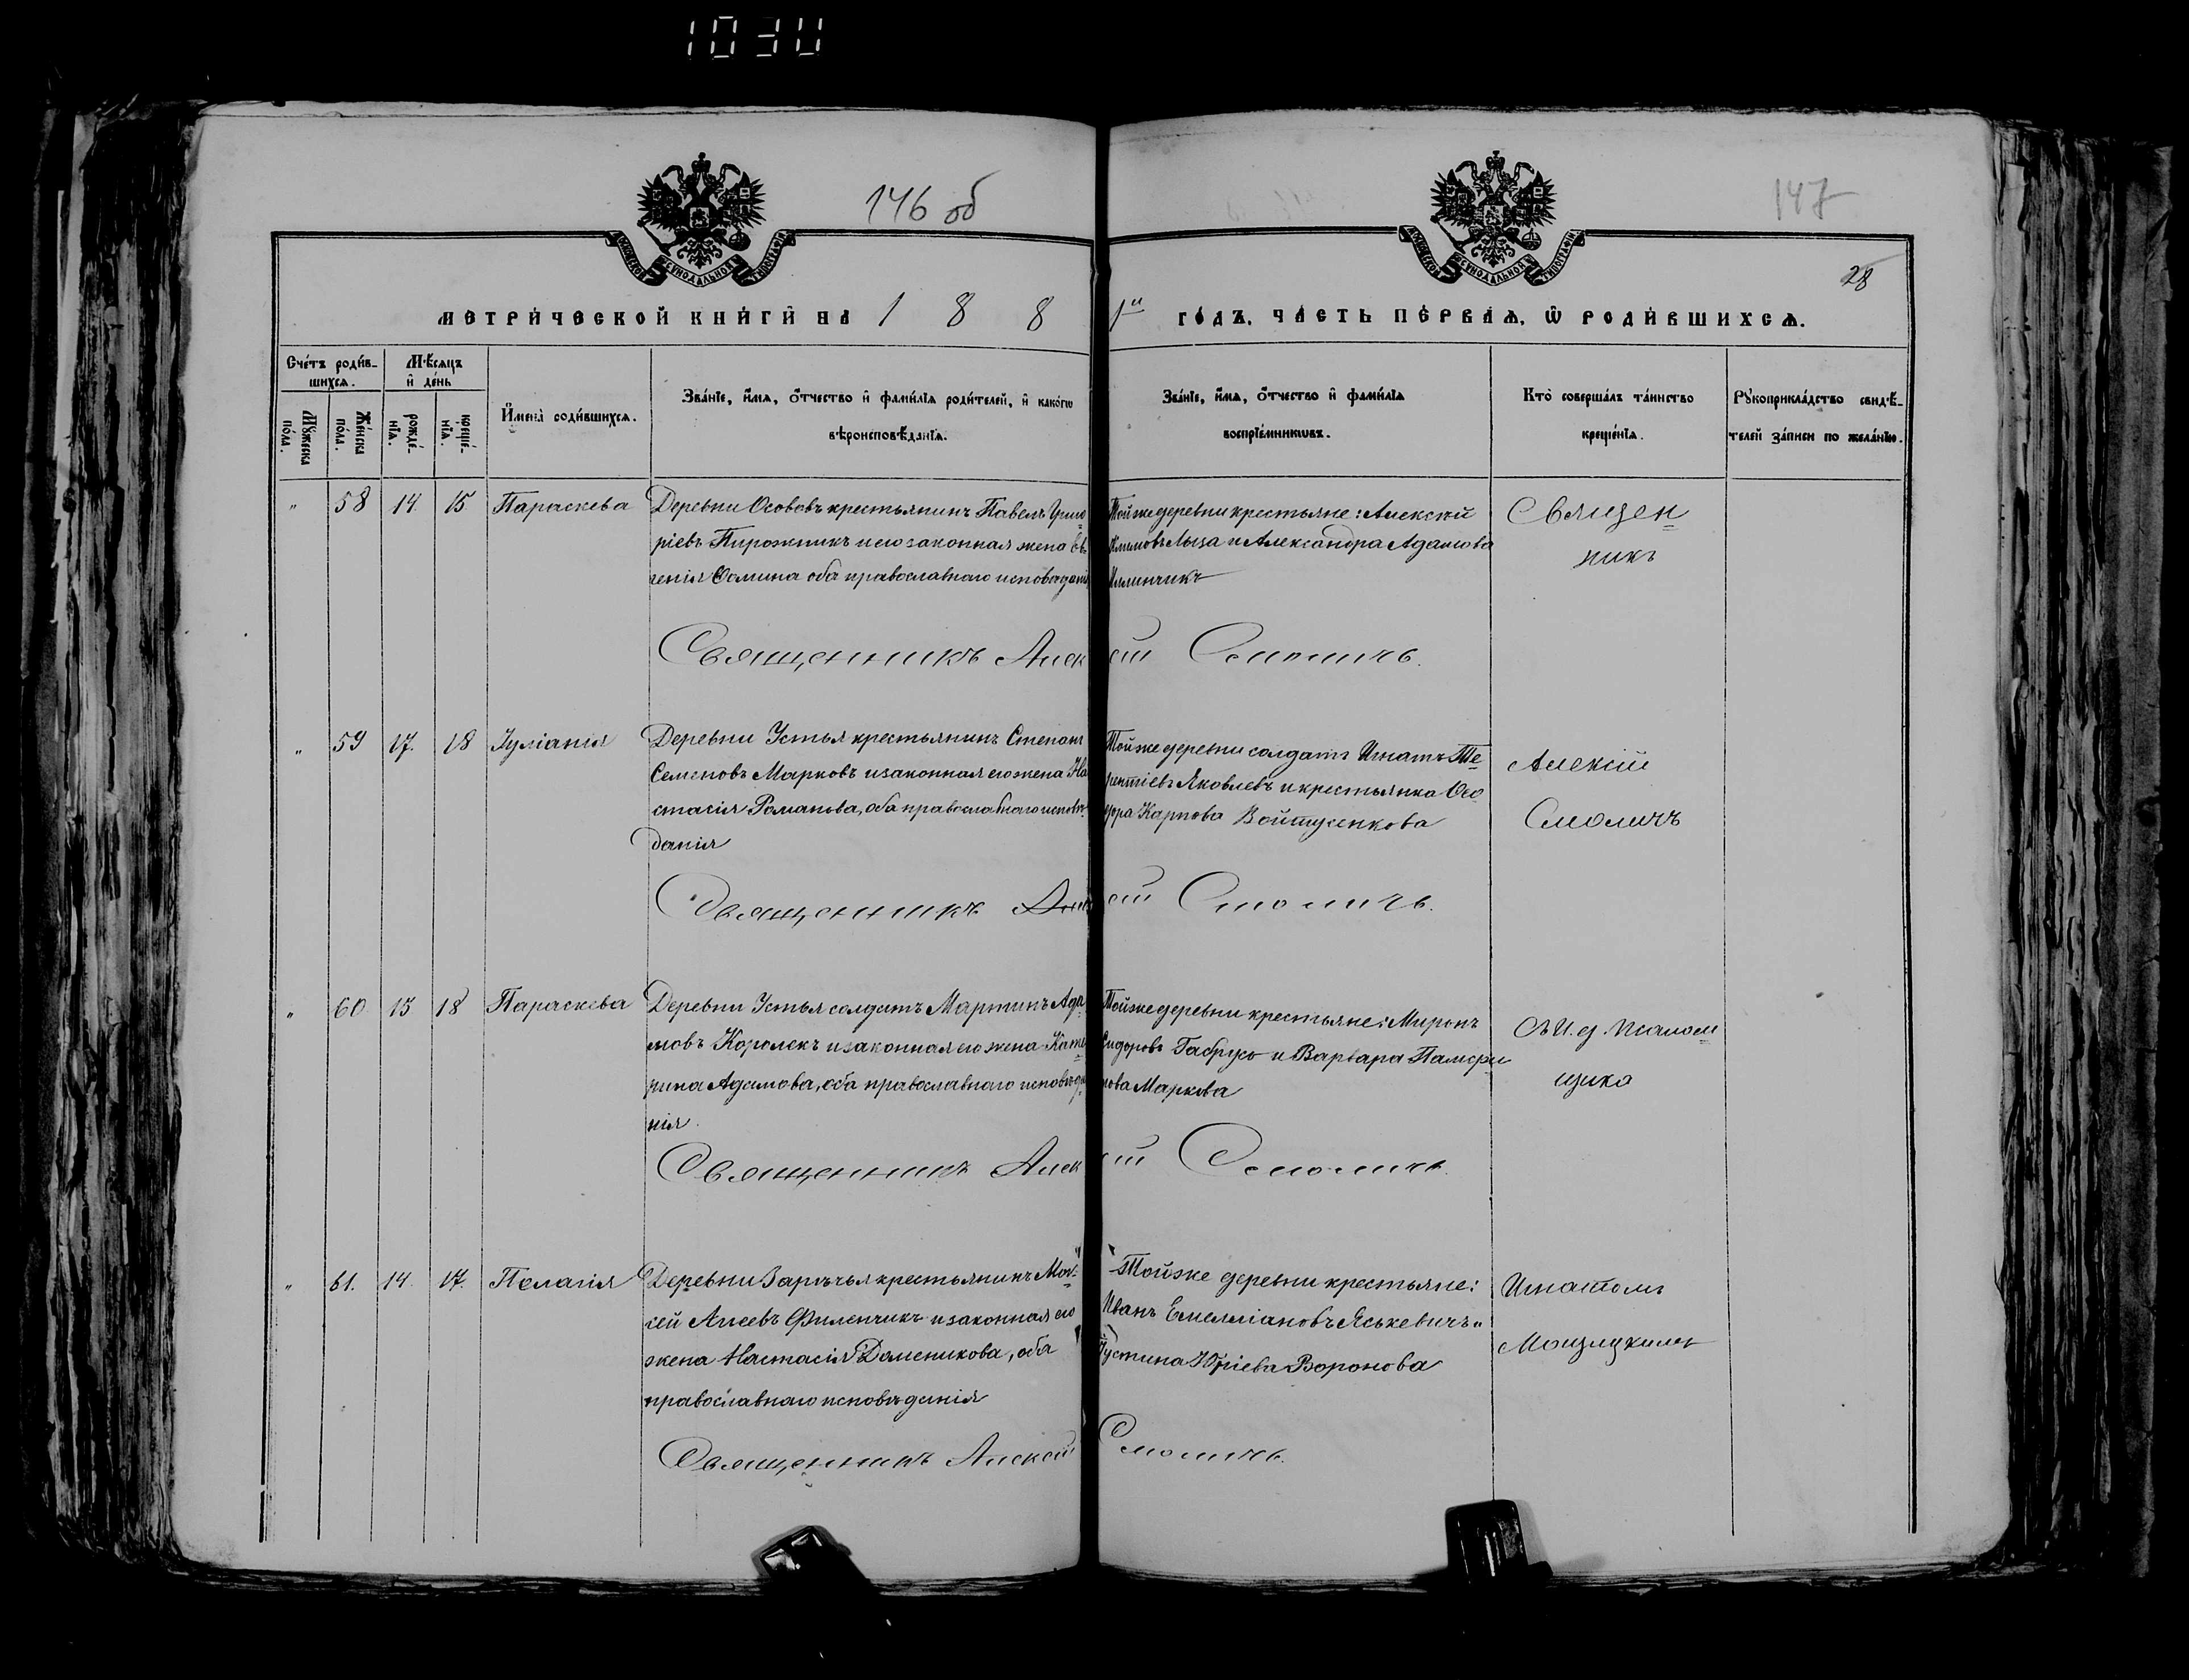 1030
146 об
147
28
МОСКОВСКОЙ СѴНОДАЛЬНОЙ ТИПОГРАФІИ
МОСКОВСКОЙ СѴНОДАЛЬНОЙ ТИПОГРАФІИ
МЕТРИ́ЧЕСКОЙ КНИ́ГИ НА 1 8 8 1й ГО́ДЪ, ЧА́СТЬ ПЕ́РВАѦ, Ѡ РОДИ́ВШИХСѦ.
Сче́тъ роди́в-
шихсѧ.
Мꙋ́жеска по́ла.
Же́нска по́ла.
Мѣ́сѧцъ
и де́нь
рожде́-нїѧ.
креще́-нїѧ.
Имена̀ роди́вшихсѧ.
Зва́нїе, и́мѧ, о́тчество и фами́лїѧ роди́телей, и како́гѡ
вѣроисповѣ́данїѧ.
Зва́нїе, и́мѧ, о́тчество и фами́лїѧ
воспрїе́мникѡвъ.
Кто̀ соверша́лъ та́инство
креще́нїѧ.
Рꙋкоприкла́дство свидѣ́-
телей за́писи по жела́нїю.
" 58 14 15 Параскева
Деревни Ососовъ крестьянинъ Павелъ Григо
ріевъ Пирожникъ и его законная жена Ев
генія Ѳомина оба православнаго исповѣданія
Той же деревни крестьяне: Алексѣй
Климовъ Лыза и Александра Адамова
Священ
никъ
Священникъ Алексій Смоличъ.
" 59 17. 18 Іуліанія
Деревни Устья крестьянинъ Степанъ
Семеновъ Марковъ и законная его жена На
стасія Романова, оба православнаго исповѣ
данія
Той же деревни солдатъ Игнатъ Те
рентіевъ Яковлевъ и крестьянка Ѳео
дора Карпова Войтусенкова
Алексій
Смоличъ
Священникъ Алексій Смоличъ.
" 60 15 18 Параскева
Деревни Устья солдатъ Мартинъ Ада
мовъ Королекъ и законная его жена Кате
рина Адамова, оба православнаго исповѣда
нія.
Той же деревни крестьяне: Миронъ
Сидоровъ Габрусь и Варвара Памфи
лова Маркова
Съ и. д. псалом
щика
Священникъ Алексій Смоличъ.
" 61. 14. 17. Пелагія
Деревни Зарѣчья крестьянинъ Мои
сей Агеевъ Филенчикъ и законная его
жена Настасія Доменикова, оба
православнаго исповѣданія
Той же деревни крестьяне:
Иванъ Емеліановъ Яськевичъ и
Іустина Юріева Воронова
Игнатомъ
Священникъ Алексій Смоличъ.